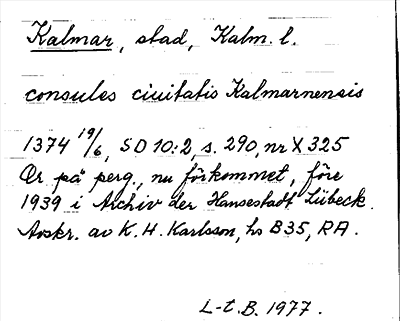 Kalmar, stad, Kalm. l.
consules ciuitatis Kalmarnensis
1374 19/6, SD 10:2, s. 290, nr X 325
Or på perg., nu förkommet, före
1939 i Archiv der Hansestadt Lübeck.
Avskr. av K. H. Karlsson, hs B35, RA.
L-t. B. 1977.